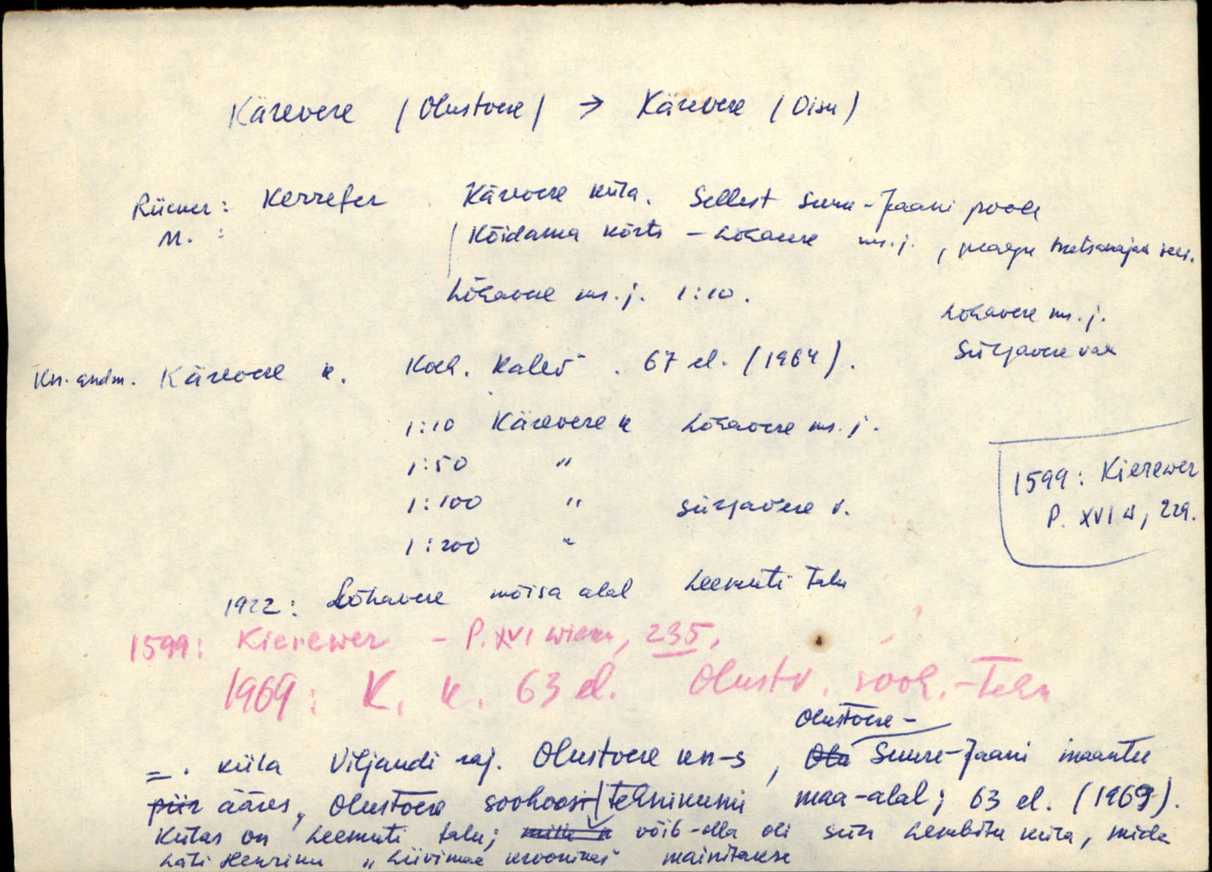 Kärevere (Olustvere) → Kärevere (Oisu)
Rücker: Kerrefer Kärevere küla. Sellest Suure-Jaani poole
M. : Kõidama kõrts - Lõhavere ms. j., praegu metsavahi
Lõhavere ms. j. 1:10.
Lõhavere ms. j.
Kn. andm. Kärevere k. Kolh. Kalev. 67 el. (1964). Sürgavere
1:10 Kärevere k Lõhavere ms. j.
1:50 "
1:100 " Sürgavere v.
1:200 "
1599: Kierewer
P. XVI w, 229.
1922: Lõhavere mõisa alal Leemuti talu
1599: Kierewer - P. XVI wieku, 235,
1969: K. k. 63 el. Olustv. sovh.-tehn
Olustvere-
=. küla Viljandi raj. Olustvere kn-s, Olu Suure-Jaani maantee
piir ääres, Olustvere sovhoostehnikumi maa-alal; 63 el. (1969).
Külas on Leemuti talu; võib-olla oli siin Lembitu küla, mida
Läti Henriku "Liivimaa kroonikas" mainitakse